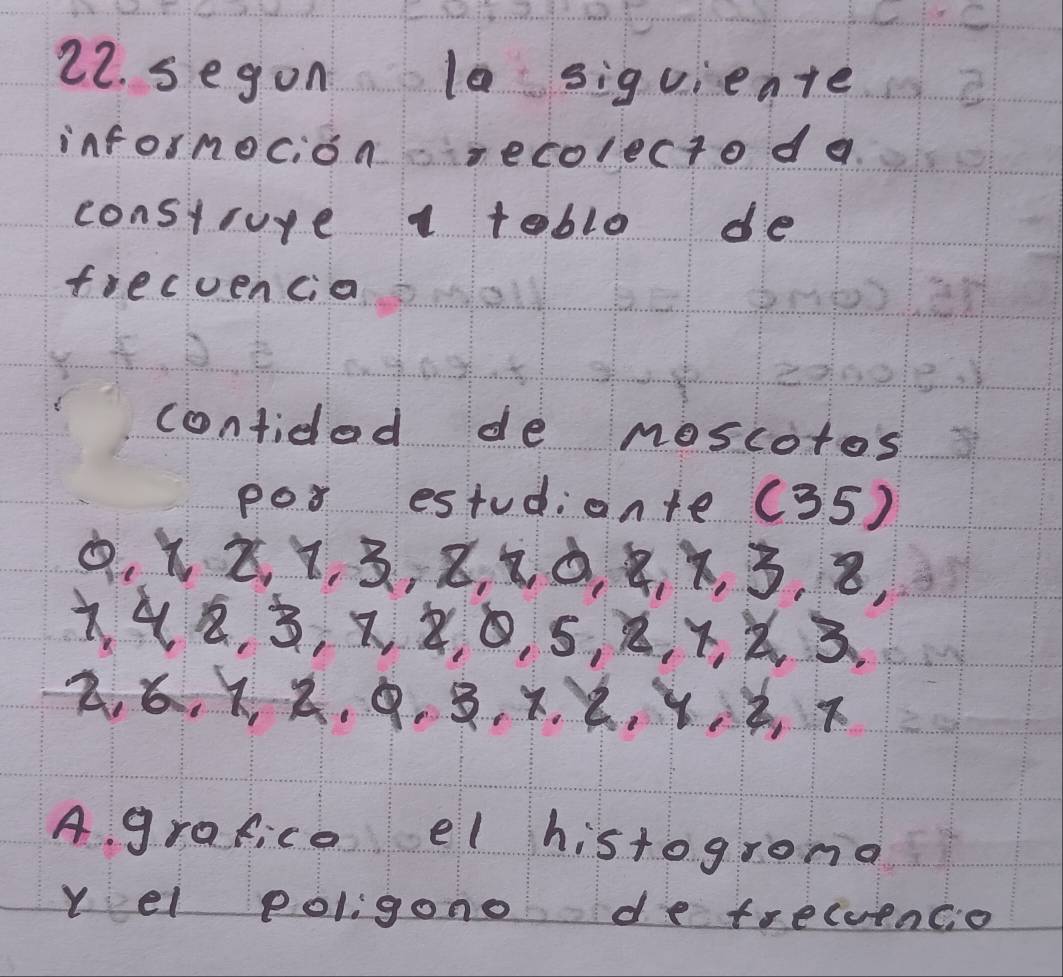 22. segun la siguiente
información recolectada
construye 1 tabla de
frecuencia.
cantidad de mascotas
por estudiante (35)
0, 1, 2, 1, 3, 2, 1, 0, 2, 1, 3, 2,
1, 4, 2, 3, 1, 2, 0, 5, 2, 1, 2, 3,
2, 6, 1, 2, 0, 3, 1, 2, 4, 2, 1.
A. grafica el histograma
y el poligono de frecuencia